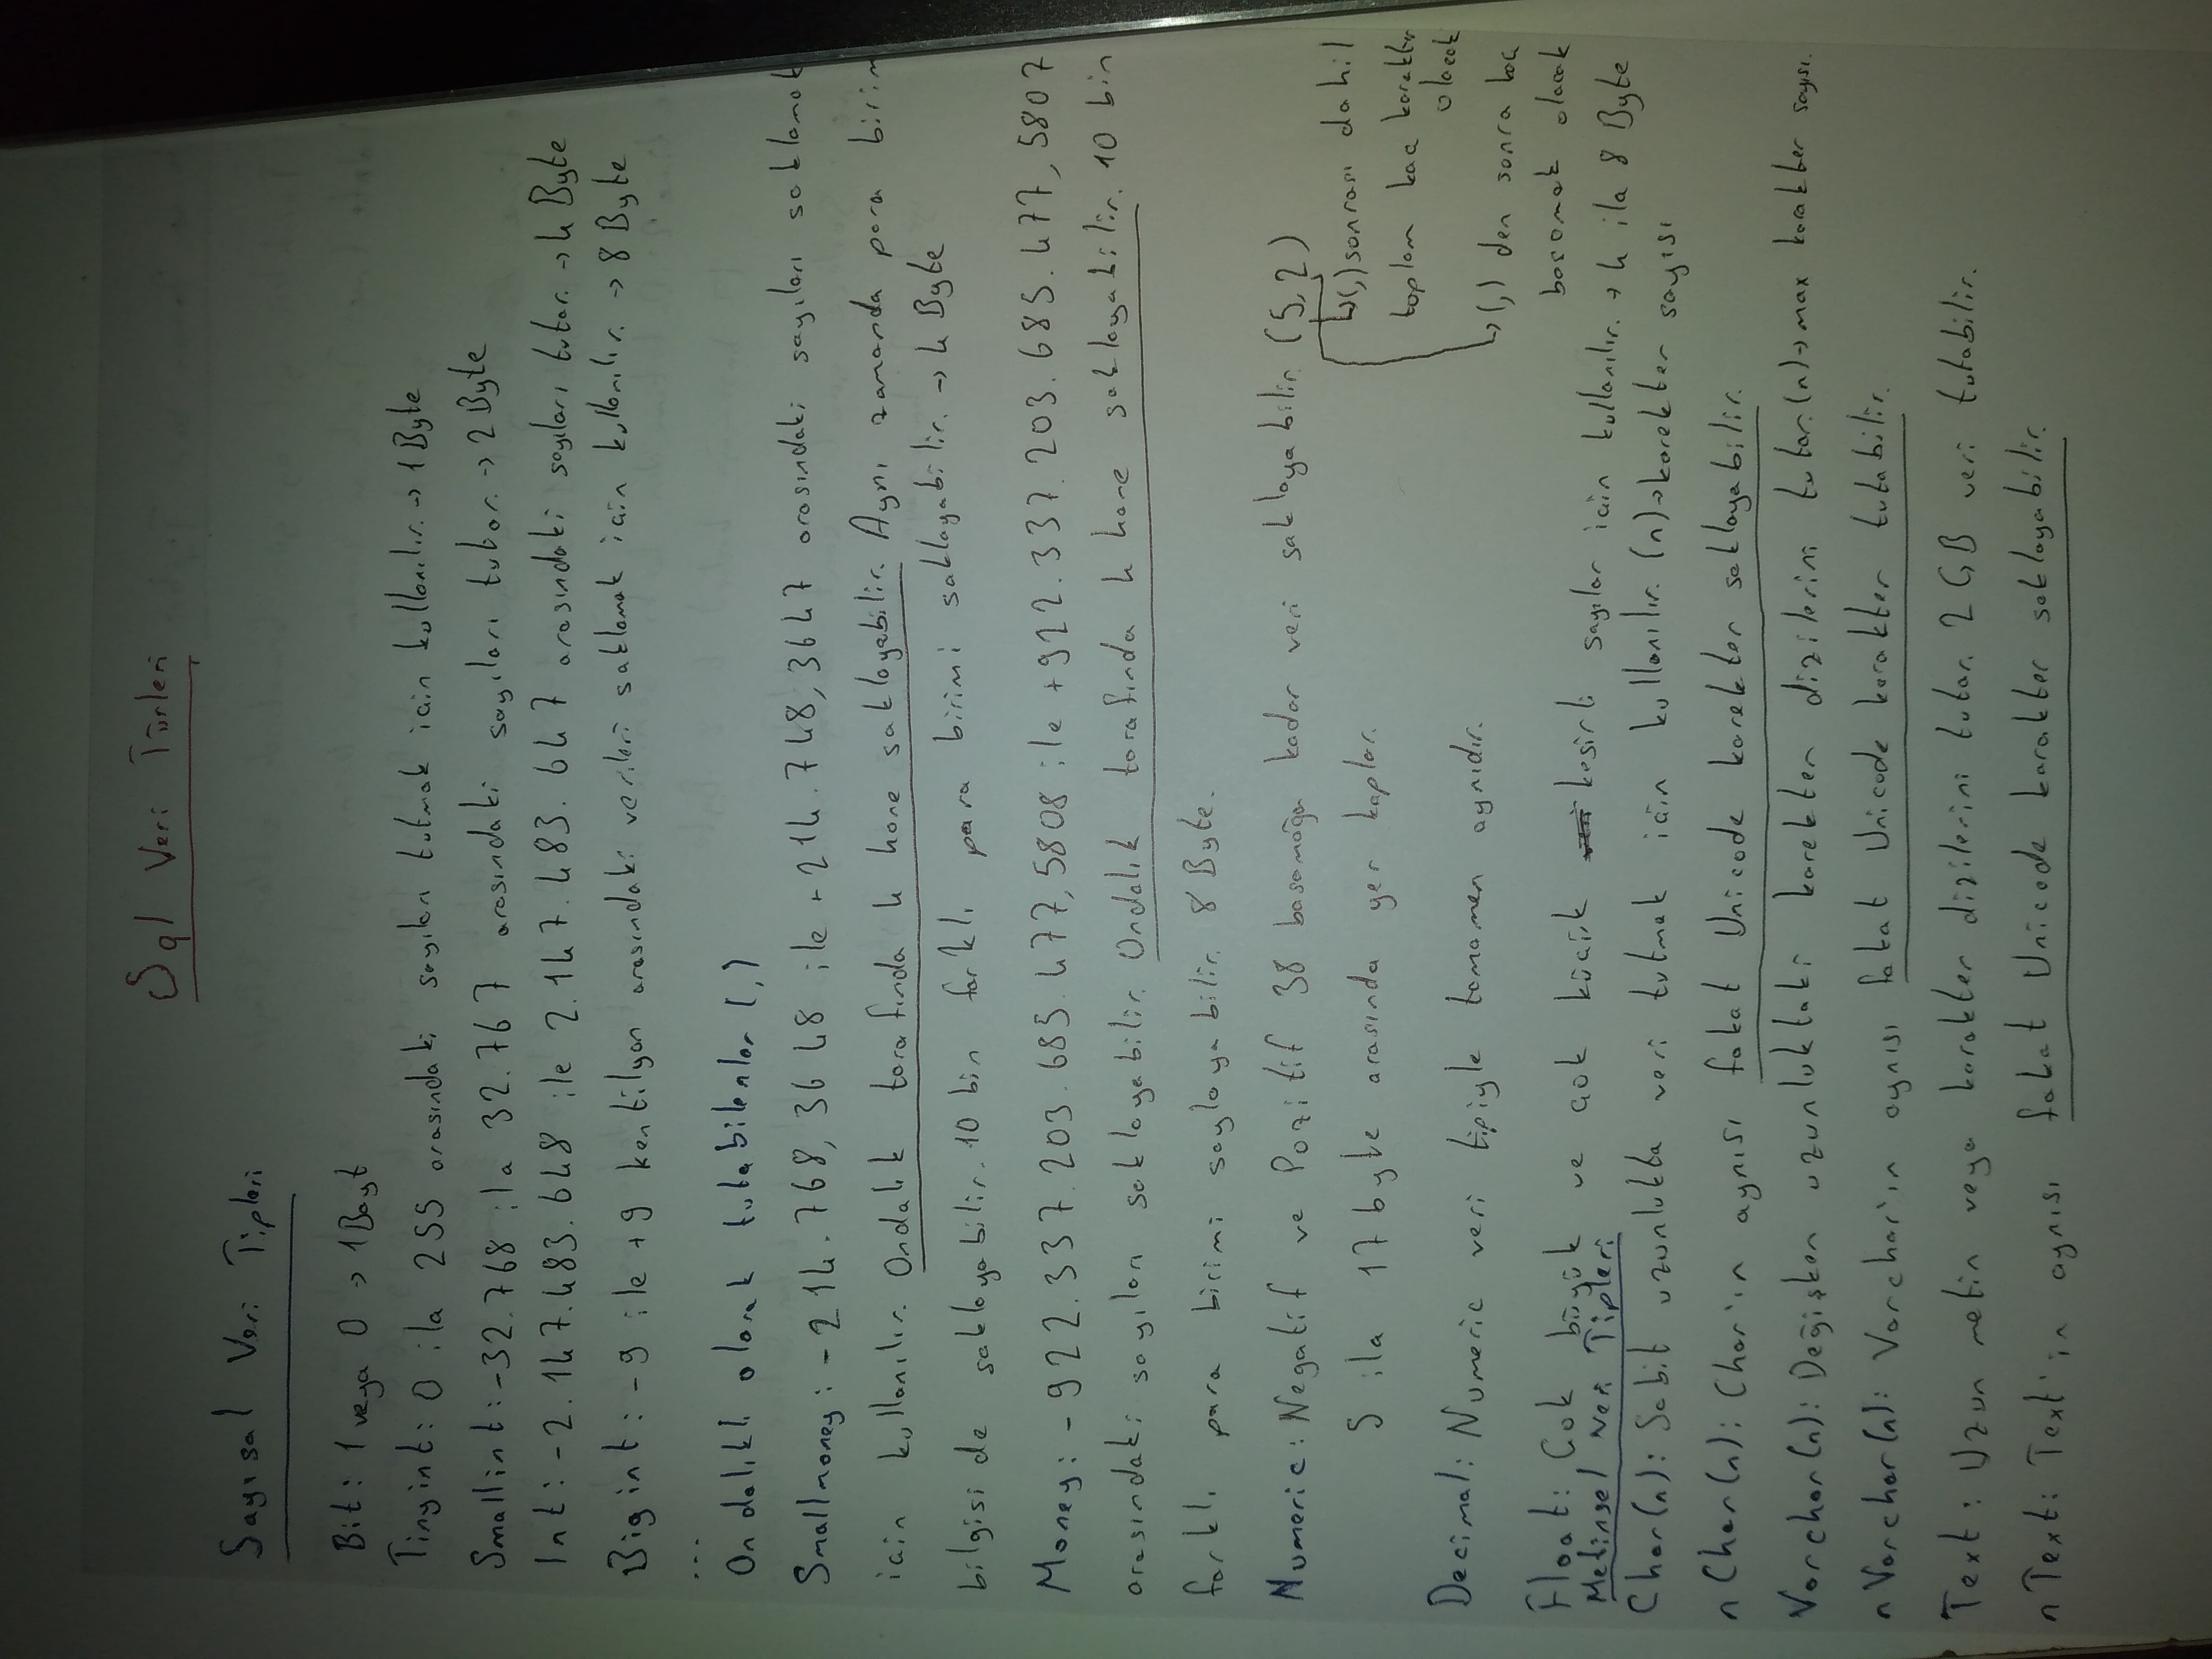 Sql Veri Türleri
Sayısal Veri Tipleri
Bit: 1 veya 0 → 1 Bayt
Tinyint: 0 ila 255 arasındaki sayıları tutmak için kullanılır. → 1 Byte
Smallint: -32.768 ila 32.767 arasındaki sayıları tutar. → 2 Byte
Int: -2.147.483.648 ile 2.147.483.647 arasındaki sayıları tutar. → 4 Byte
Bigint: -9 ile +9 kentilyon arasındaki verileri saklamak için kullanılır. → 8 Byte
...
Ondalıklı olarak tutabilenler (,)
Smallmoney: -214.768,3648 ile +214.748,3647 arasındaki sayıları saklamak
için kullanılır. Ondalık tarafında 4 hane saklayabilir. Aynı zamanda para birim
bilgisi de saklayabilir. 10 bin farklı para birimi saklayabilir. → 4 Byte
Money: -922.337.203.685.477,5808 ile +922.337.203.685.477,5807
arasındaki sayıları saklayabilir. Ondalık tarafında 4 hane saklayabilir. 10 bin
farklı para birimi saylayabilir. 8 Byte.
Numeric: Negatif ve Pozitif 38 basamağa kadar veri saklayabilir (5,2)
→(,) sonrası dahil
5 ila 17 byte arasında yer kaplar.
toplam kaç karakter
olacak
Decimal: Numeric veri tipiyle tamamen aynıdır.
→(,) den sonra kaç
basamak olacak
Float: Çok büyük ve çok küçük kesirli sayılar için kullanılır. → 4 ila 8 Byte
Metinsel Veri Tipleri
Char(n): Sabit uzunlukta veri tutmak için kullanılır. (n)→karekter sayısı
nChar(n): Char'ın aynısı fakat Unicode karekter saklayabilir.
Varchar(n): Değişken uzunluktaki karekter dizilerini tutar. (n)→max karakter sayısı.
nVarchar(n): Varchar'ın aynısı fakat Unicode karakter tutabilir.
Text: Uzun metin veya karakter dizilerini tutar. 2 GB veri tutabilir.
nText: Text'in aynısı fakat Unicode karakter saklayabilir.